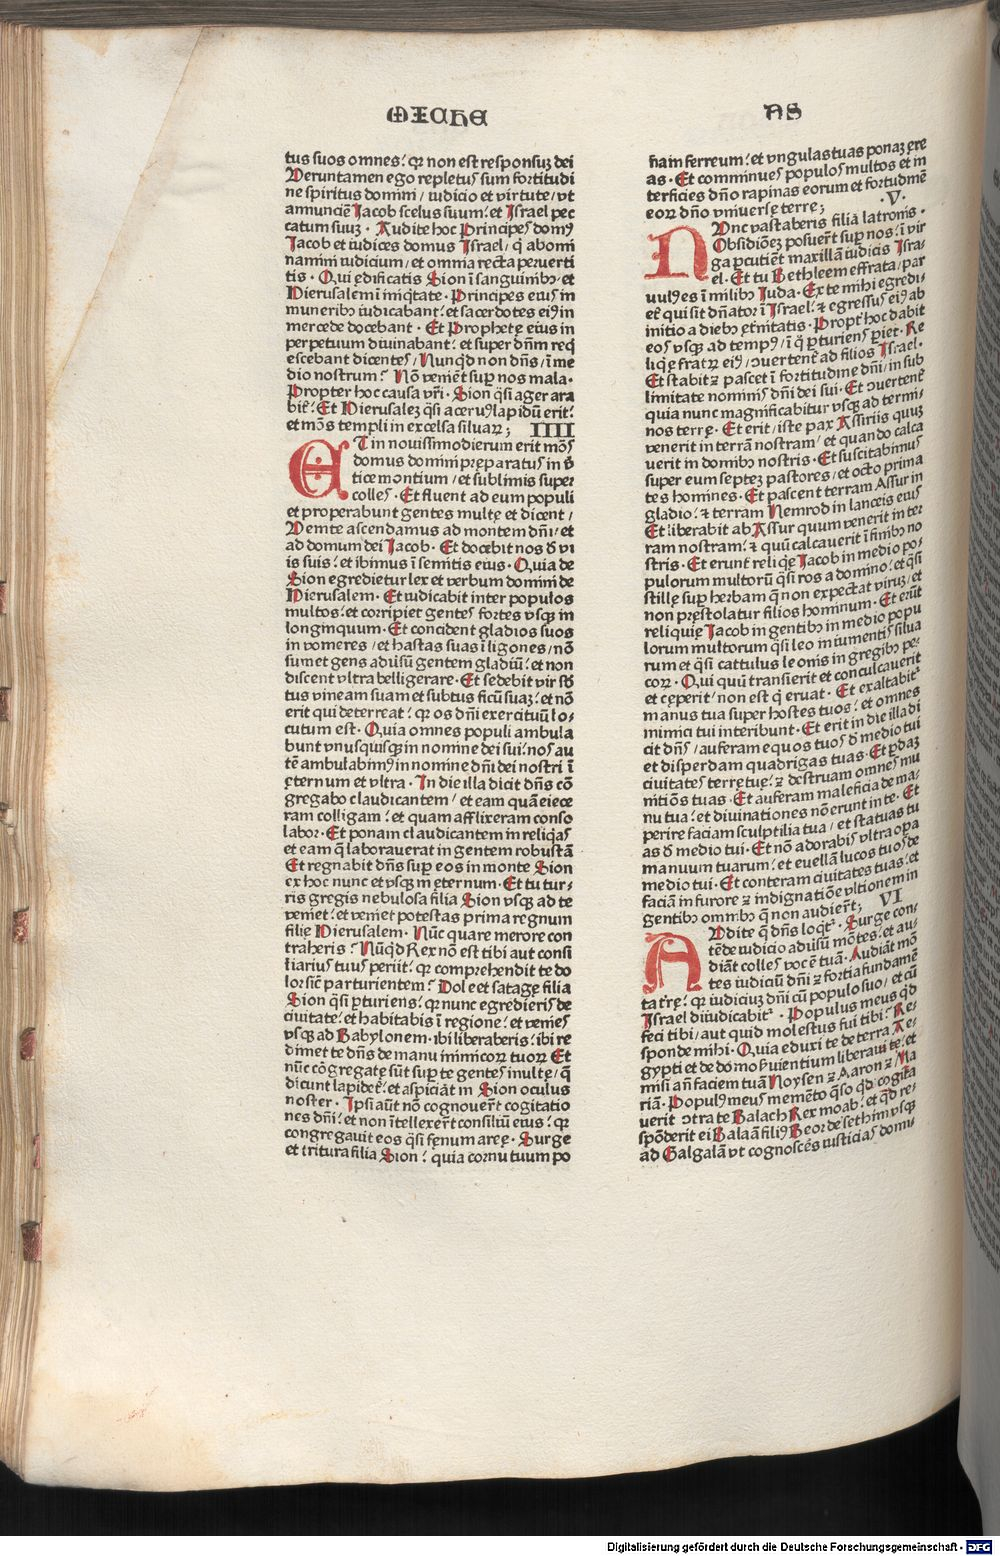 MICHE
AS
tus suos omnes: qꝛ non est responsuꝫ dei
Veruntamen ego repletꝰ sum fortitudi
ne spiritus domini / iudicio et virtute / vt
annunciē Iacob scelus suum: et Israel pec
catum suuꝫ · Audite hoc Principes domꝰ
Iacob et iudices domus Israel / q̄ abomi
namini iudicium / et omnia recta peruerti
tis · Qui ędificatis Sion ī sanguinibꝫ · et
Hierusalem ī iniq̄tate · Principes eius in
muneribꝫ iudicabant: et sacerdotes eiꝰ in
mercede docebant · Et Prophetę eius in
perpetuum diuinabant: et super dn̄m req̄
escebant dicentes / Nunqd non dn̄s / ī me
dio nostrum? Nō veniēt suꝑ nos mala ·
Propter hoc causa vr̄i · Sion q̄si ager ara
bit̄: Et Hierusaleꝫ q̄si aceruꝰ lapidū erit:
et mōs templi in excelsa siluaꝝ; IIII
ET in nouissimo dierum erit mōs
domus domini pręparatus in v̄
tice montium / et sublimis super
colles · Et fluent ad eum populi
et properabunt gentes multę et dicent /
Venite ascendamus ad montem dn̄i / et
ad domum dei Iacob · Et docebit nos d̄ vi
is suis: et ibimus ī semitis eius · Quia de
Sion egredietur lex et verbum domini de
Hierusalem · Et iudicabit inter populos
multos: et corripiet gentes fortes vsqꝫ in
longinquum · Et concident gladios suos
in vomeres / et hastas suas ī ligones / nō
sumet gens aduīsū gentem gladiū: et non
discent vltra belligerare · Et sedebit vir sb̄
tus vineam suam et subtus ficū suaꝫ: et nō
erit qui deterreat: qꝛ os dn̄i exercituū lo-
cutum est · Quia omnes populi ambula
bunt vnusquisqꝫ in nomine dei sui: nos au
tē ambulabimꝰ in nomine dn̄i dei nostri ī
ęternum et vltra · In die illa dicit dn̄s cō
gregabo claudicantem / et eam quā eiece
ram colligam: et quam afflixeram conso
labor · Et ponam claudicantem in reliq̄as
et eam q̄ laborauerat in gentem robustā
Et regnabit dn̄s suꝑ eos in monte Sion
ex hoc nunc et vsqꝫ in ęternum · Et tu tur-
ris gregis nebulosa filia Sion vsqꝫ ad te
veniet: et veniet potestas prima regnum
filię Hierusalem · Nūc quare merore con
traheris? Nūqd Rex nō est tibi aut consi
liarius tuus periit: qꝛ comprehendit te do
lor sic̄ parturientem? Dole et satagę filia
Sion q̄si ꝑturiens: qꝛ nunc egredieris de
ciuitate: et habitabis ī regione: et venies
vsqꝫ ad Babylonem · ibi liberaberis: ibi re
dimet te dn̄s de manu inimicoꝝ tuoꝝ Et
nūc cōgregatę sūt suꝑ te gentes multę / q̄
dicunt lapidet̄: et aspiciāt in Sion oculus
noster · Ipsi aūt nō cognouer̄t cogitatio
nes dn̄i: et non ītellexer̄t consiliū eius: qꝛ
congregauit eos q̄si fęnum areę · Surge
et tritura filia Sion: quia cornu tuum po
nam ferreum: et vngulas tuas ponaꝫ ęre
as · Et comminues populos multos et in
terficies dn̄o rapinas eorum et fortitudinē
eoꝝ dn̄o vniuersę terrę; · V ·
NVnc vastaberis filia latronis ·
Obsidiōeꝫ posuer̄t suꝑ nos: ī vir
ga ꝑcutiēt maxillā iudicis Isra-
el · Et tu Bethleem effrata / par
uulꝰ es ī milibꝫ Iuda · Ex te mihi egredi-
et̄ qui sit dn̄ator ī Israel: ⁊ egressus eiꝰ ab
initio a diebꝫ ęt̄nitatis · Propt̄ hoc dabit
eos vsqꝫ ad tempꝰ / ī q̄ ꝑturiens ꝑiet · Re
liq̄ę fratꝝ eiꝰ / ↄuertent̄ ad filios Israel ·
Et stabit ⁊ pascet ī fortitudine dn̄i / in sub
limitate nominis dn̄i dei sui · Et ↄuertent̄
quia nunc magnificabitur vsqꝫ ad termi-
nos terrę · Et erit / iste pax Assirius quuꝫ
venerit in terrā nostram / et quando calca
uerit in domibꝫ nostris · Et suscitabimus
super eum septeꝫ pastores / et octo prima
tes homines · Et pascent terram Assur in
gladio: ⁊ terram Nemrod in lanceis eius
Et liberabit ab Assur quum venerit in ter
ram nostram: ⁊ quū calcauerit ī finibꝫ no
stris · Et erunt reliq̄ę Iacob in medio po-
pulorum multorū q̄si ros a domino: et q̄si
stillę suꝑ herbam q̄ non expectat viruꝫ / et
non pręstolatur filios hominum · Et erūt
reliquię Iacob in gentibꝫ in medio popu
lorum multorum q̄si leo in iumentis silua
rum et q̄si cattulus leonis in gregibꝫ pe-
coꝝ · Qui quū transierit et conculcauerit
et cęperit / non est q̄ eruat · Et exaltabit̄
manus tua super hostes tuos: et omnes
inimici tui interibunt · Et erit in die illa di
cit dn̄s / auferam equos tuos d̄ medio tui
et disperdam quadrigas tuas · Et ꝑdaꝫ
ciuitates terrę tuę: ⁊ destruam omnes mu
nitiōs tuas · Et auferam maleficia de ma-
nu tua: et diuinationes nō erunt in te · Et
perire faciam sculptilia tua / et statuas tu
as d̄ medio tui · Et nō adorabis vltra oꝑa
manuum tuarum: et euellā lucos tuos de
medio tui · Et conteram ciuitates tuas: et
faciā in furore ⁊ indignatiōe vltionem in
gentibꝫ omnibꝫ q̄ non audier̄t; VI
AVdite q̄ dn̄s loqt̄ · Surge con-
tēde iudicio aduīsū mōtes: et au-
diāt colles vocē tuā · Audiāt mō
tes iudiciū dn̄i ⁊ fortia fundamē
ta t̄rę: qꝛ iudiciuꝫ dn̄i cū populo suo / et cū
Israel diiudicabit̄ · Populus meus qd
feci tibi / aut quid molestus fui tibi? Re-
sponde mihi · Quia eduxi te de terra Ae-
gypti et de domo ſuientium liberaui te: et
misi an̄ faciem tuā Moysen ⁊ Aaron ⁊ Ma
riā · Populꝰ meus memēto q̄so qd cogita
uerit ↄtra te Balach Rex moab: et qd re-
spōderit ei Balaā filiꝰ Beor de sethim vsqꝫ
ad Galgalā vt cognosces iusticias domi
Digitalisierung gefördert durch die Deutsche Forschungsgemeinschaft · DFG